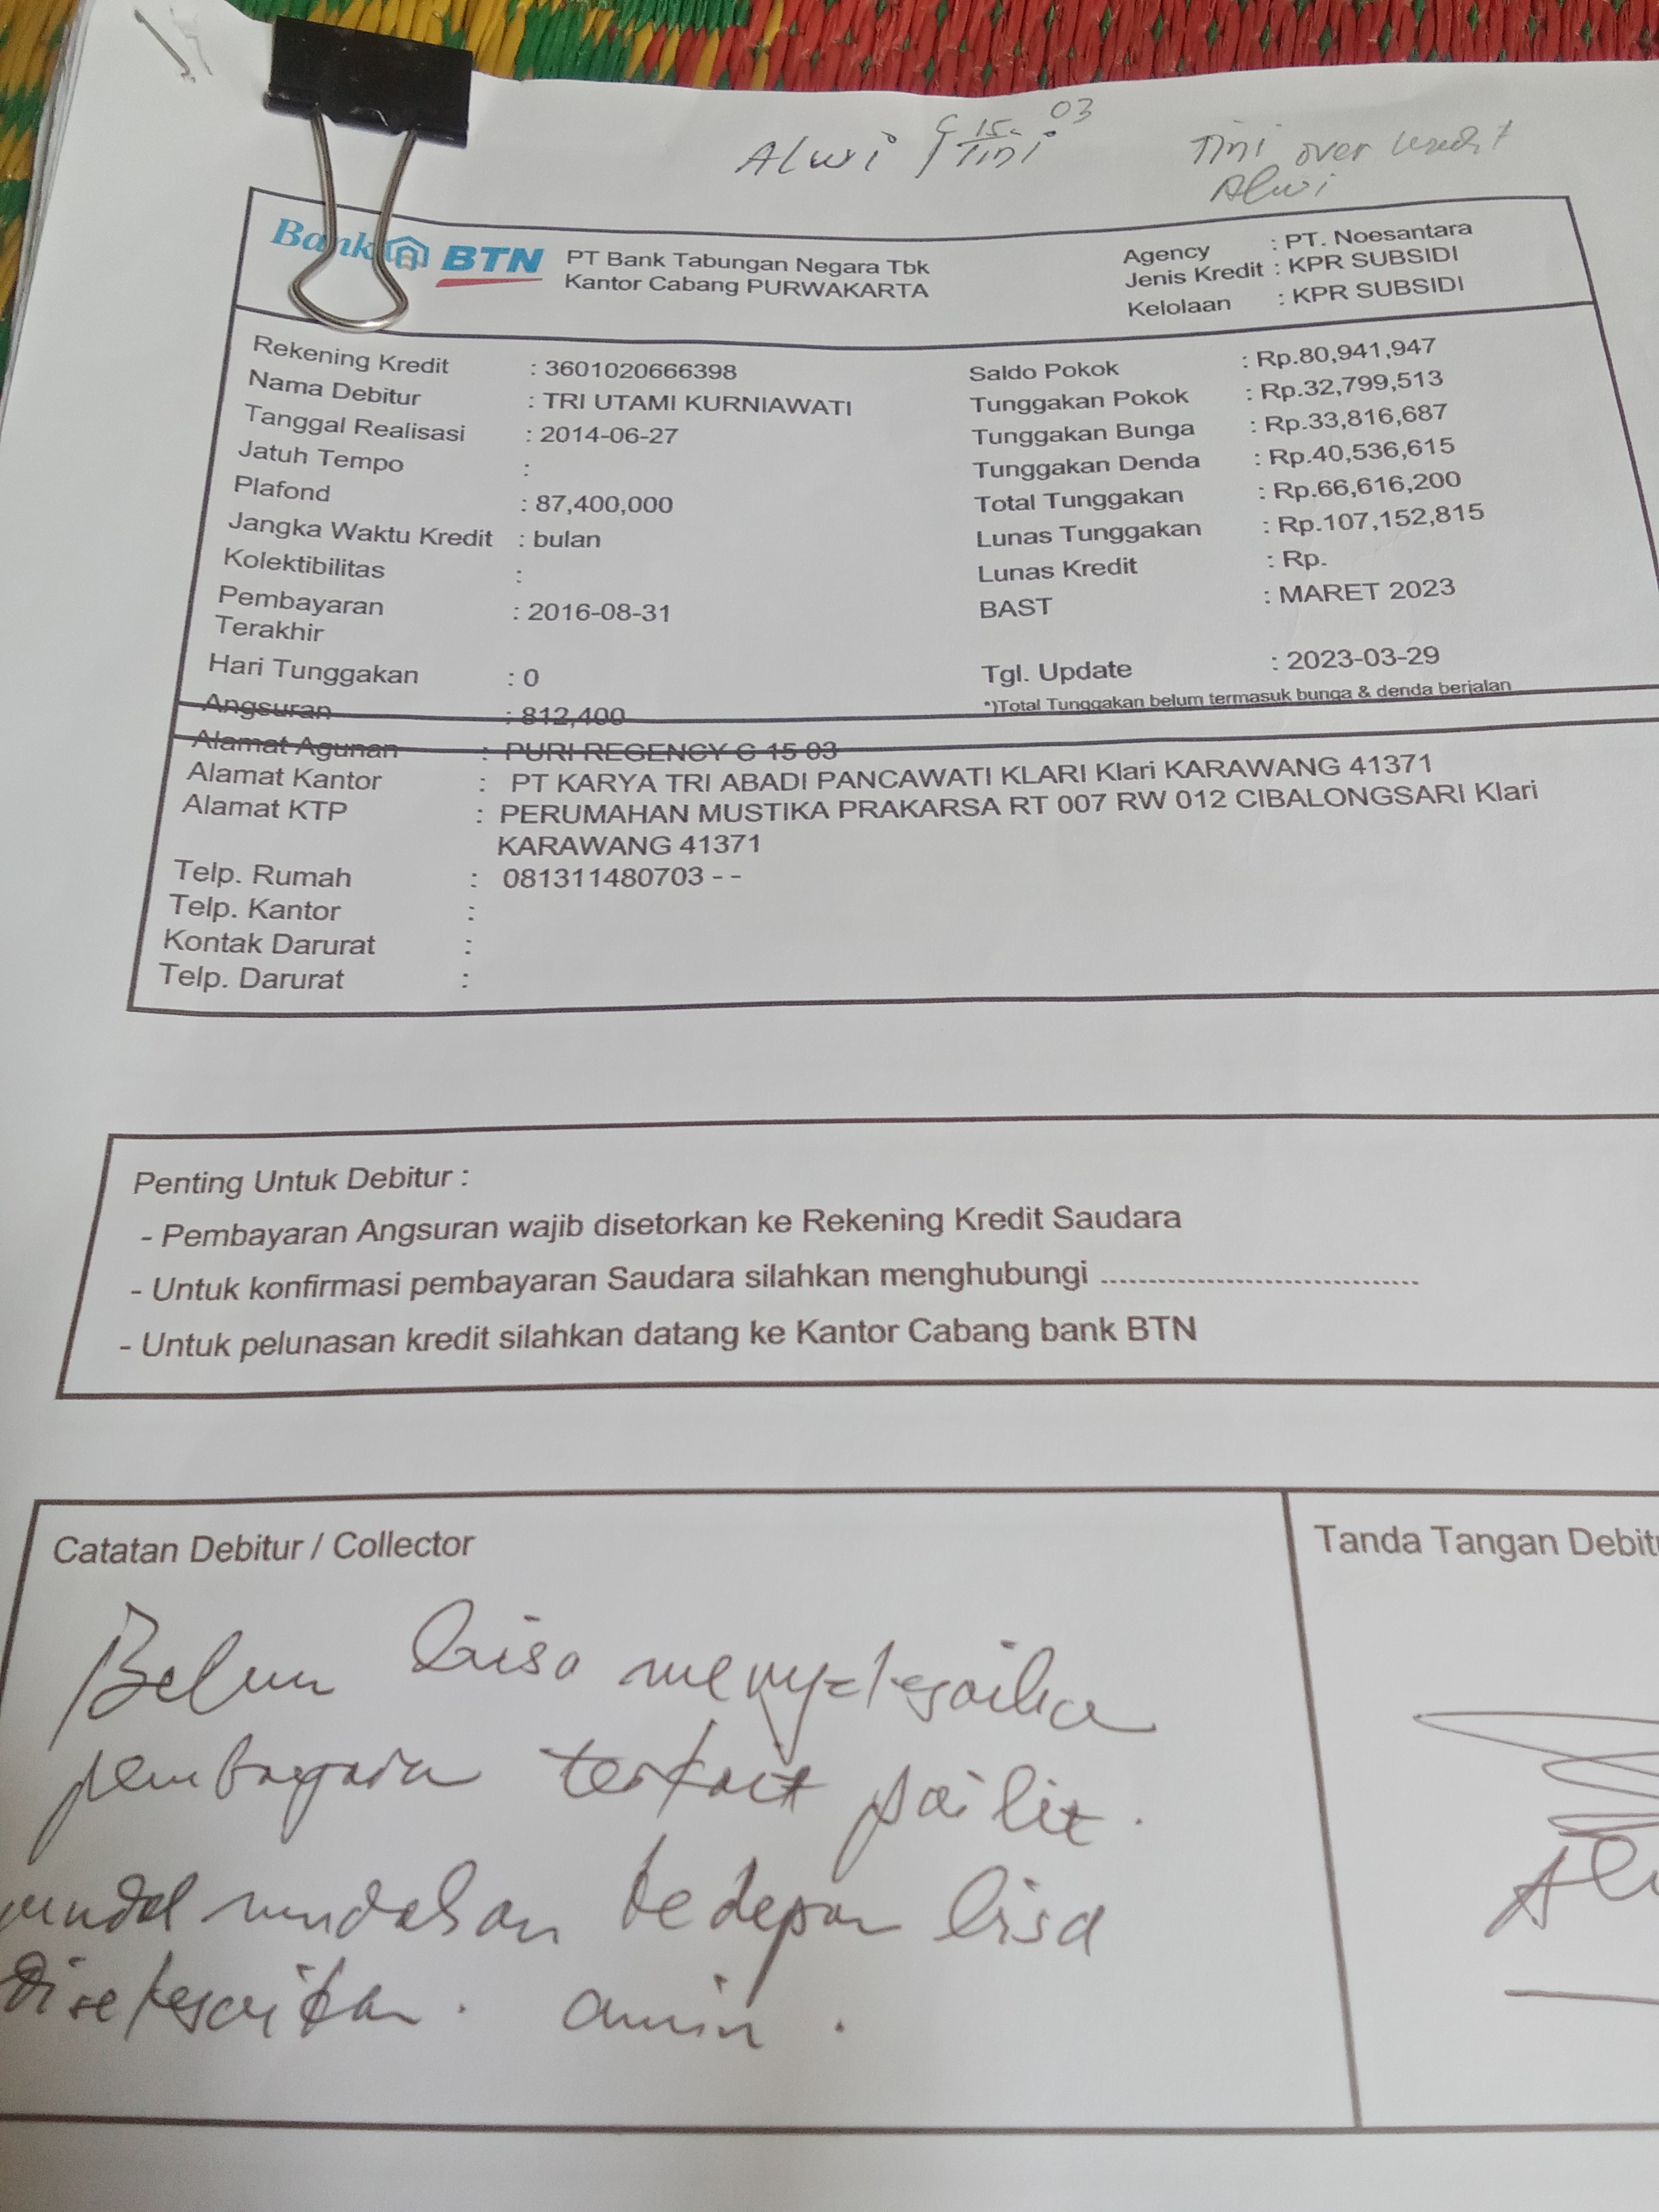 Alwi / Tini C 15- 03
Tini over kredit
Alwi
Bank BTN
PT Bank Tabungan Negara Tbk
Kantor Cabang PURWAKARTA
Agency : PT. Noesantara
Jenis Kredit : KPR SUBSIDI
Kelolaan : KPR SUBSIDI
Rekening Kredit : 3601020666398
Nama Debitur : TRI UTAMI KURNIAWATI
Tanggal Realisasi : 2014-06-27
Jatuh Tempo :
Plafond : 87,400,000
Jangka Waktu Kredit : bulan
Kolektibilitas :
Pembayaran : 2016-08-31
Terakhir
Hari Tunggakan : 0
Angsuran : 812,400
Saldo Pokok : Rp.80,941,947
Tunggakan Pokok : Rp.32,799,513
Tunggakan Bunga : Rp.33,816,687
Tunggakan Denda : Rp.40,536,615
Total Tunggakan : Rp.66,616,200
Lunas Tunggakan : Rp.107,152,815
Lunas Kredit : Rp.
BAST : MARET 2023
Tgl. Update : 2023-03-29
*)Total Tunggakan belum termasuk bunga & denda berjalan
Alamat Agunan : PURI REGENCY C 15 03
Alamat Kantor : PT KARYA TRI ABADI PANCAWATI KLARI Klari KARAWANG 41371
Alamat KTP : PERUMAHAN MUSTIKA PRAKARSA RT 007 RW 012 CIBALONGSARI Klari
KARAWANG 41371
Telp. Rumah : 081311480703 - -
Telp. Kantor :
Kontak Darurat :
Telp. Darurat :
Penting Untuk Debitur :
- Pembayaran Angsuran wajib disetorkan ke Rekening Kredit Saudara
- Untuk konfirmasi pembayaran Saudara silahkan menghubungi .................................
- Untuk pelunasan kredit silahkan datang ke Kantor Cabang bank BTN
Catatan Debitur / Collector
Tanda Tangan Debitu
Belum bisa menyelesaika
pembayara terkait pailit.
mudah mudahan kedepan bisa
diselesaikan. amin.
Al